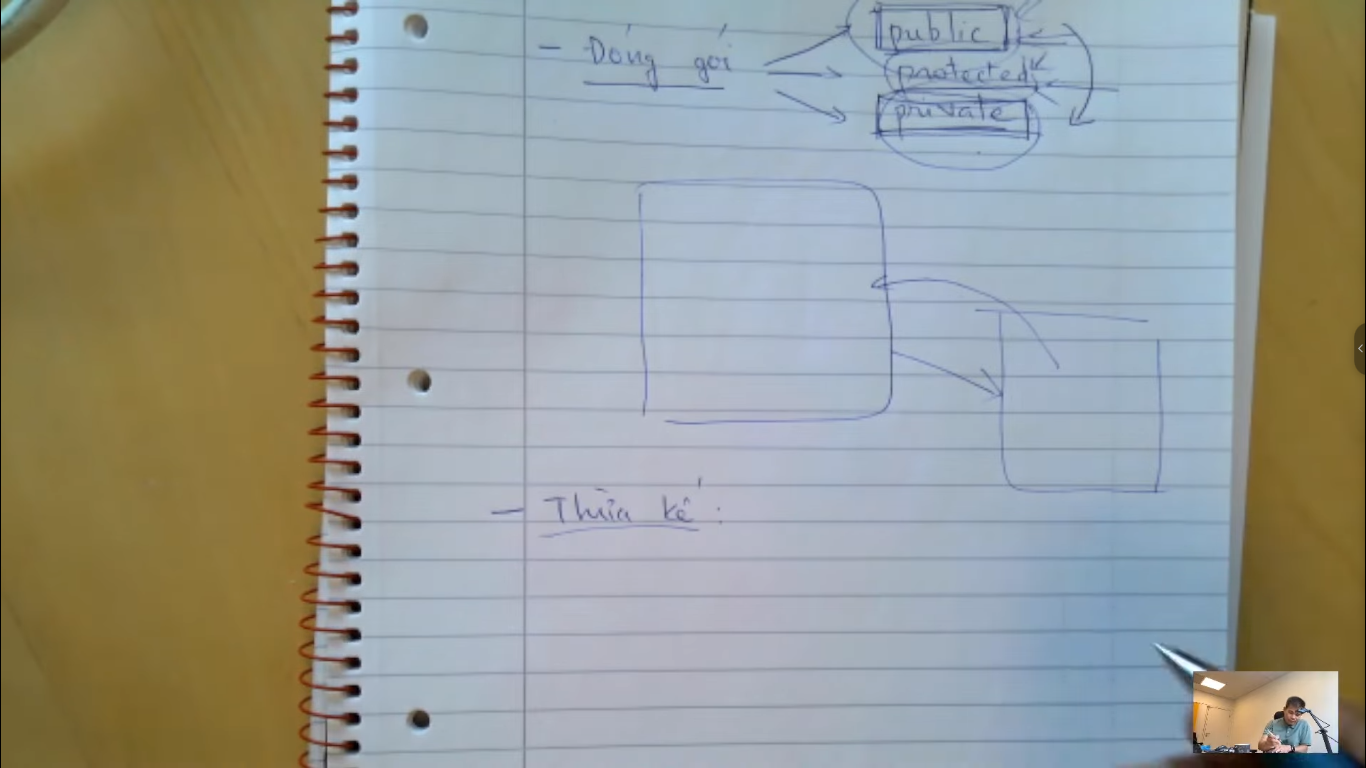 - Đóng gói
public
protected
private
- Thừa kế :